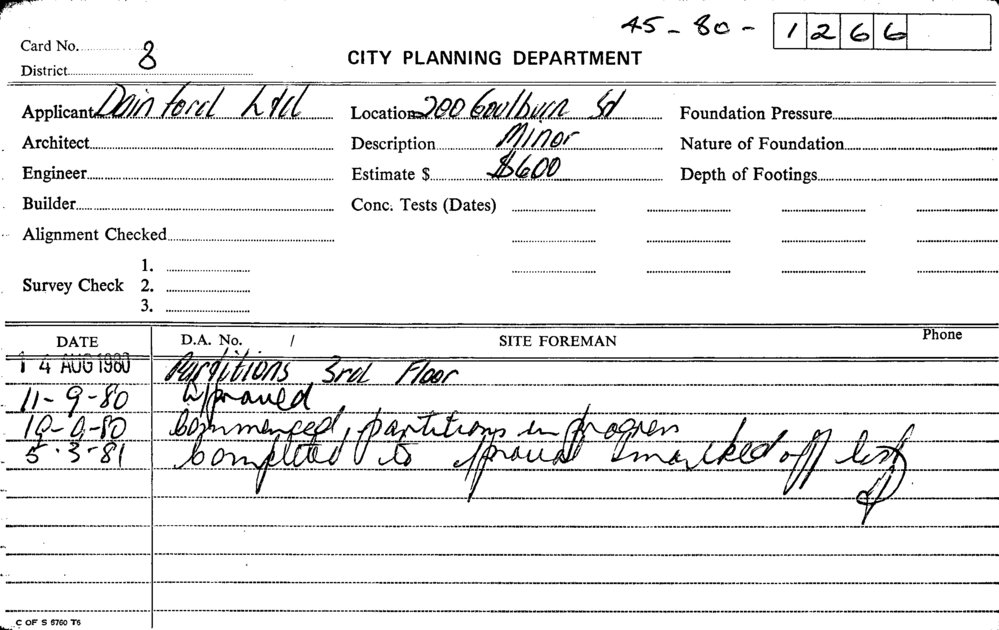 45-80-1266
Card No. 8
District
CITY PLANNING DEPARTMENT
Applicant Dainford Ltd Location 200 Goulburn St Foundation Pressure
Architect Description Minor Nature of Foundation
Engineer Estimate $ $600 Depth of Footings
Builder Conc. Tests (Dates)
Alignment Checked
1.
Survey Check 2.
3.
DATE D.A. No. / SITE FOREMAN Phone
14 AUG 1980 Partitions 3rd Floor
11-9-80 Approved
19-9-80 Commenced, partitions in progress
5.3-81 Completed to approval marked off list
C OF S 6760 T6